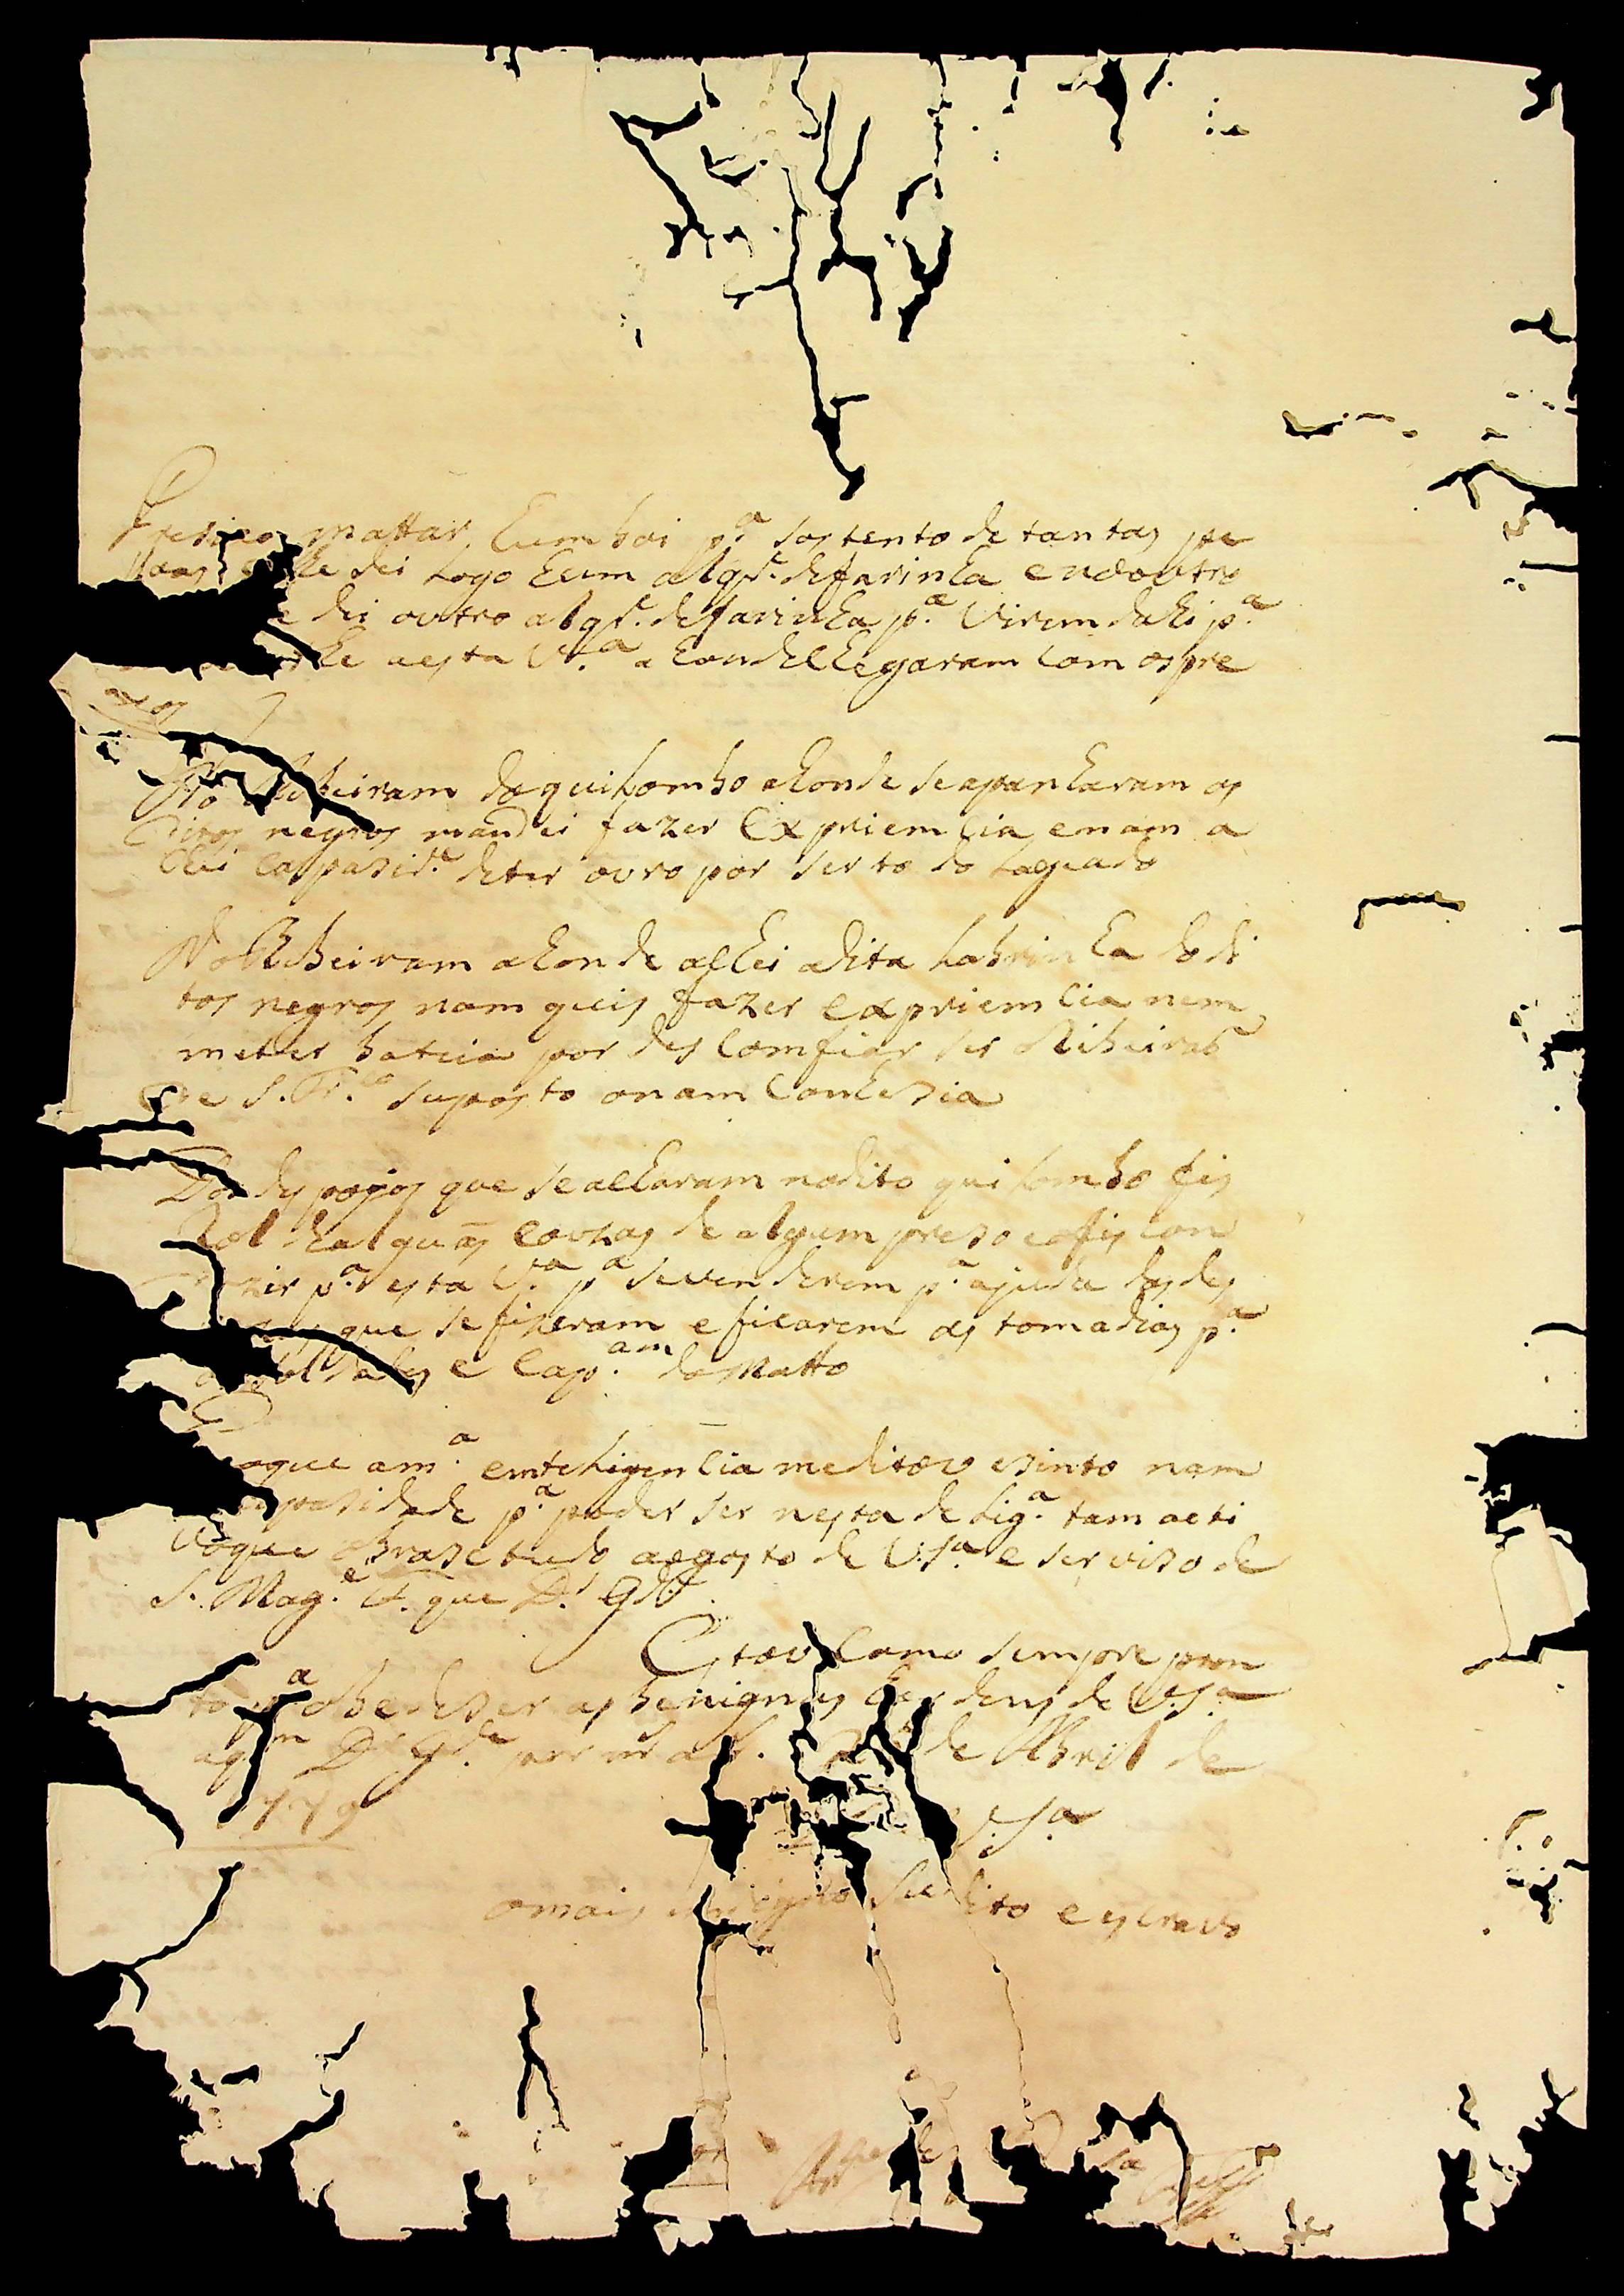 Presizo mattar hum boi p.ª sostento de tantas pe
soas lhe dei Logo hum alqr.e de farinha e no outro
e dei outro alqr.e de farinha p.ª virem dahi p.ª
the aesta V.ª ahonde chegaram com os pre
zos
No Ribeiram do quilombo ahonde se apanharam os
ditos negros mandei fazer Expriemcia e nam a
chei caspasid.e deter ouro por ser todo Lageado
No Ribeiram ahonde achei a dita Labrinha do di
tos negros nam quis fazer expriemcia nem
meter bateia por des comfiar ser Ribeirao
de S. Fr.co suposto o nam Conhesia
Dos des pojos que se acharam no dito quilombo fis
Rol de alguãs couzas de algum preso e as fis con
zir p.ª esta V.ª p.ª se venderem p.ª ajuda dos des
que se fizeram e ficarem as tomadias p.ª
os soldados e Cap.am do Matto
que a m.ª emteligencia me ditou e sinto nam
caspasidade p.ª poder ser nesta delig.ª tam acti
vo que obrase tudo a gosto de V.S.ª e serviso de
S. Mag.e F. que D.s g.de
Estou Como sempre pron
to p.ª obedeser as benignas hordens de V.S.ª
a q.m D.s g.de por m.s a.s de Abril de
1779
V.S.ª
o mais indigno sudito e escravo